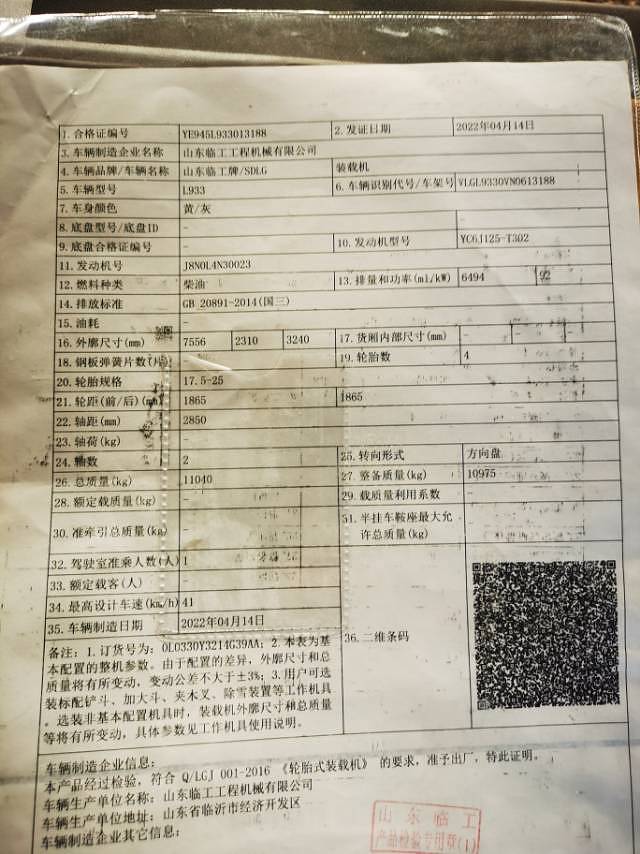 1.合格证编号 YE945L933013188 2.发证日期 2022年04月14日
3.车辆制造企业名称 山东临工工程机械有限公司
4.车辆品牌/车辆名称 山东临工牌/SDLG 装载机
5.车辆型号 L933 6.车辆识别代号/车架号 VLGL9330VN0613188
7.车身颜色 黄/灰
8.底盘型号/底盘ID - -
9.底盘合格证编号 - 10.发动机型号 YC6J125-T302
11.发动机号 J8N0L4N30023
12.燃料种类 柴油 13.排量和功率(ml/kW) 6494 92
14.排放标准 GB 20891-2014(国三)
15.油耗 -
16.外廓尺寸(mm) 7556 2310 3240 17.货厢内部尺寸(mm) - - -
18.钢板弹簧片数(片) - 19.轮胎数 4
20.轮胎规格 17.5-25
21.轮距(前/后)(mm) 1865 1865
22.轴距(mm) 2850
23.轴荷(kg) -
24.轴数 2 25.转向形式 方向盘
26.总质量(kg) 11040 27.整备质量(kg) 10975
28.额定载质量(kg) - 29.载质量利用系数 -
30.准牵引总质量(kg) - 31.半挂车鞍座最大允
许总质量(kg) -
32.驾驶室准乘人数(人) 1
33.额定载客(人) -
34.最高设计车速(km/h) 41
35.车辆制造日期 2022年04月14日
36.二维条码
备注：1.订货号为：0L0330Y3214G39AA；2.本表为基
本配置的整机参数。由于配置的差异，外廓尺寸和总
质量将有所变动，变动公差不大于±3%；3.用户可选
装标配铲斗、加大斗、夹木叉、除雪装置等工作机具
。选装非基本配置机具时，装载机外廓尺寸和总质量
等将有所变动，具体参数见工作机具使用说明。
车辆制造企业信息：
本产品经过检验，符合 Q/LGJ 001-2016 《轮胎式装载机》 的要求，准予出厂，特此证明。
车辆生产单位名称：山东临工工程机械有限公司
车辆生产单位地址：山东省临沂市经济开发区
车辆制造企业其它信息：
山东临工
产品检验专用章(1)